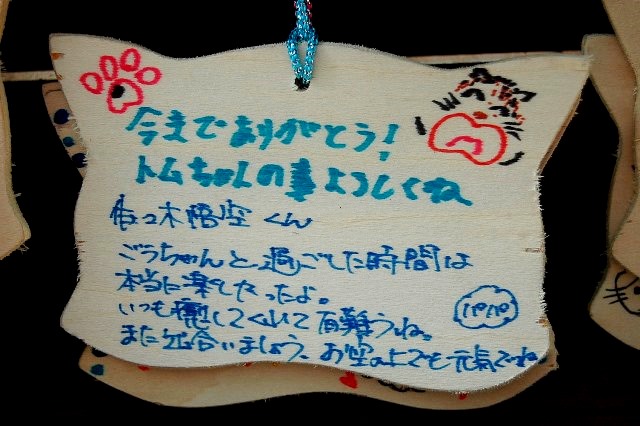 今までありがとう!
トムちゃんの事よろしくね
佐々木悟空くん
ごうちゃんと過ごした時間は
本当に楽しかったよ。
いつも癒してくれて有難うね。
また出合いましょう、お空の上でも元気でね
パパ